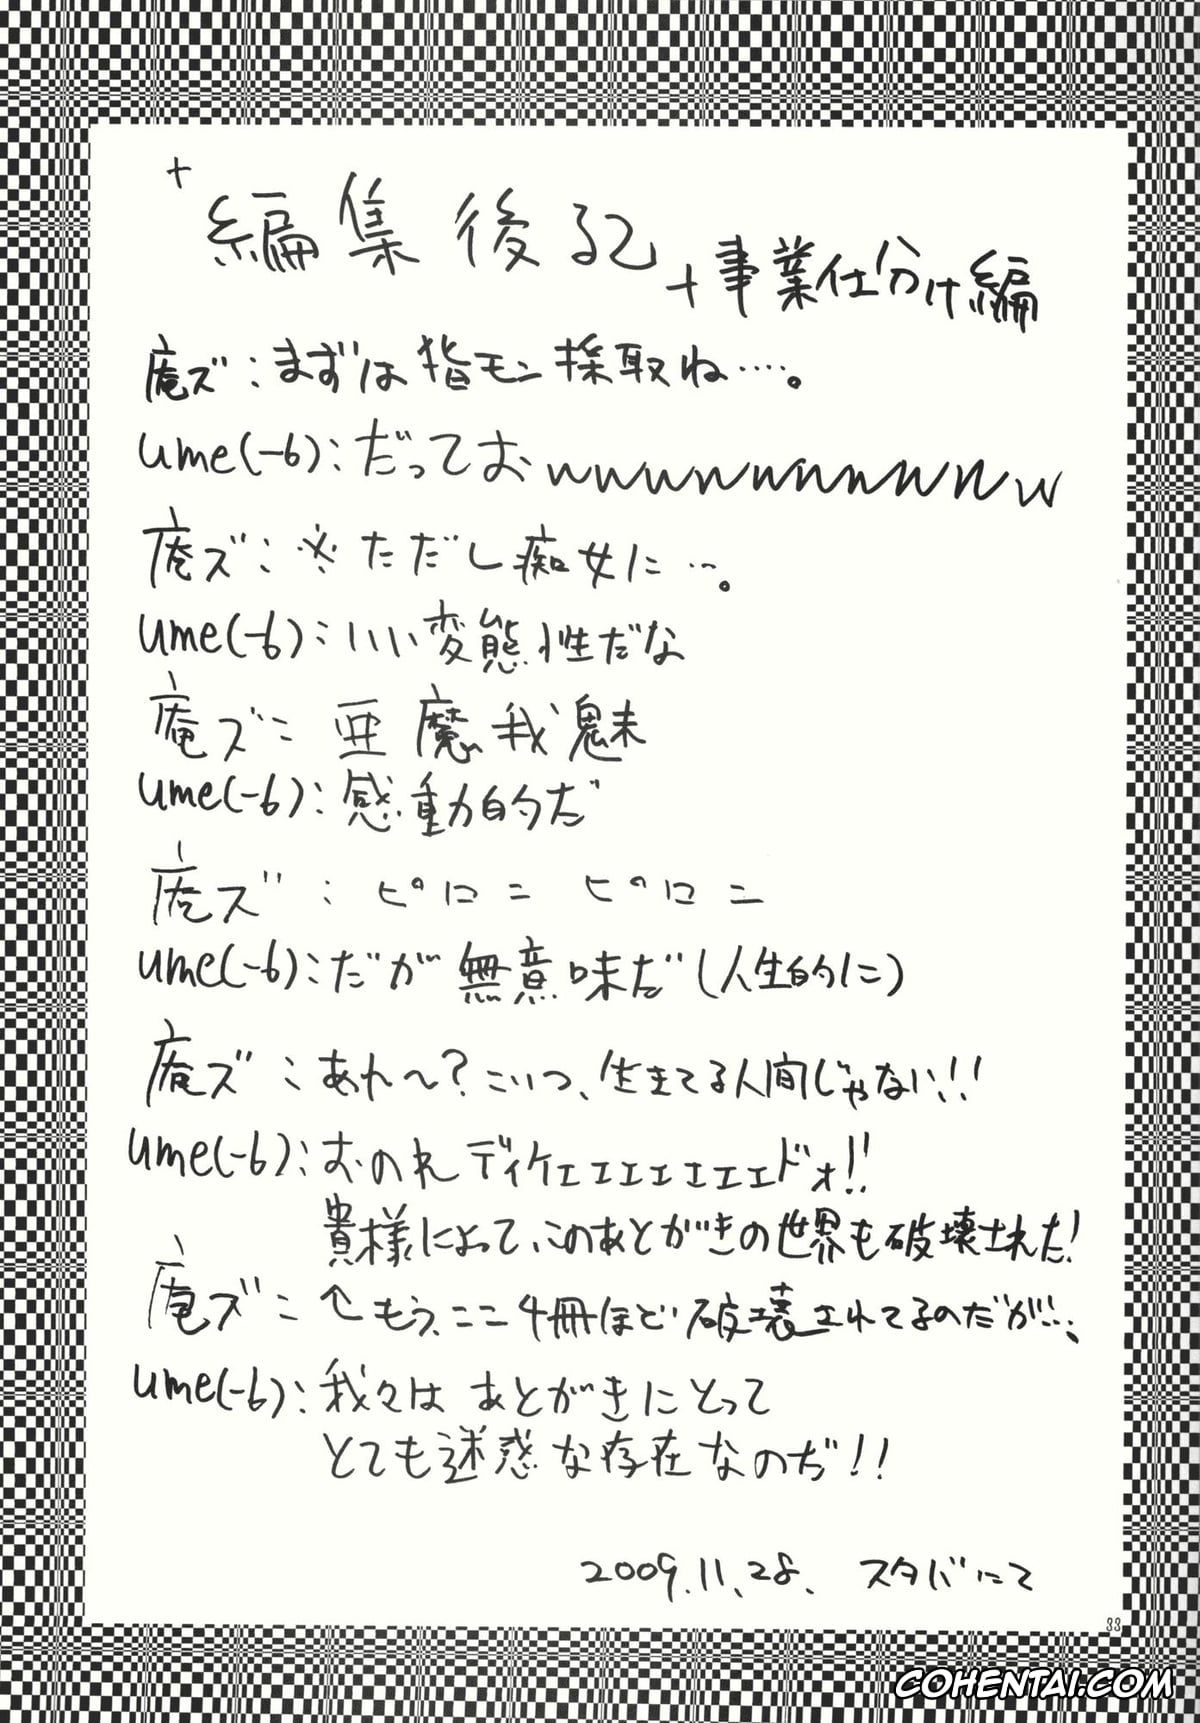 +
編集後記
+事業仕分け編
庵ズ:まずは指モン採取ね……。
ume(-6):だっておwwwwwwwwwwww
庵ズ:※ただし痴女に…。
ume(-6):いい変態性だな
庵ズ:亜魔我魅
ume(-6):感動的だ
庵ズ:ピロニ ピロニ
ume(-6):だが無意味だ(人生的に)
庵ズ:あれ〜?こいつ、生きてる人間じゃない!!
ume(-6):おのれディケェェェェェェェドォ!!
貴様によって、このあとがきの世界も破壊された!
庵ズ:↑もう、ここ4冊ほど破壊されてるのだが…
ume(-6):我々はあとがきにとって
とても迷惑な存在なのだ!!
2009.11.28. スタバにて
33
COHENTAI.COM